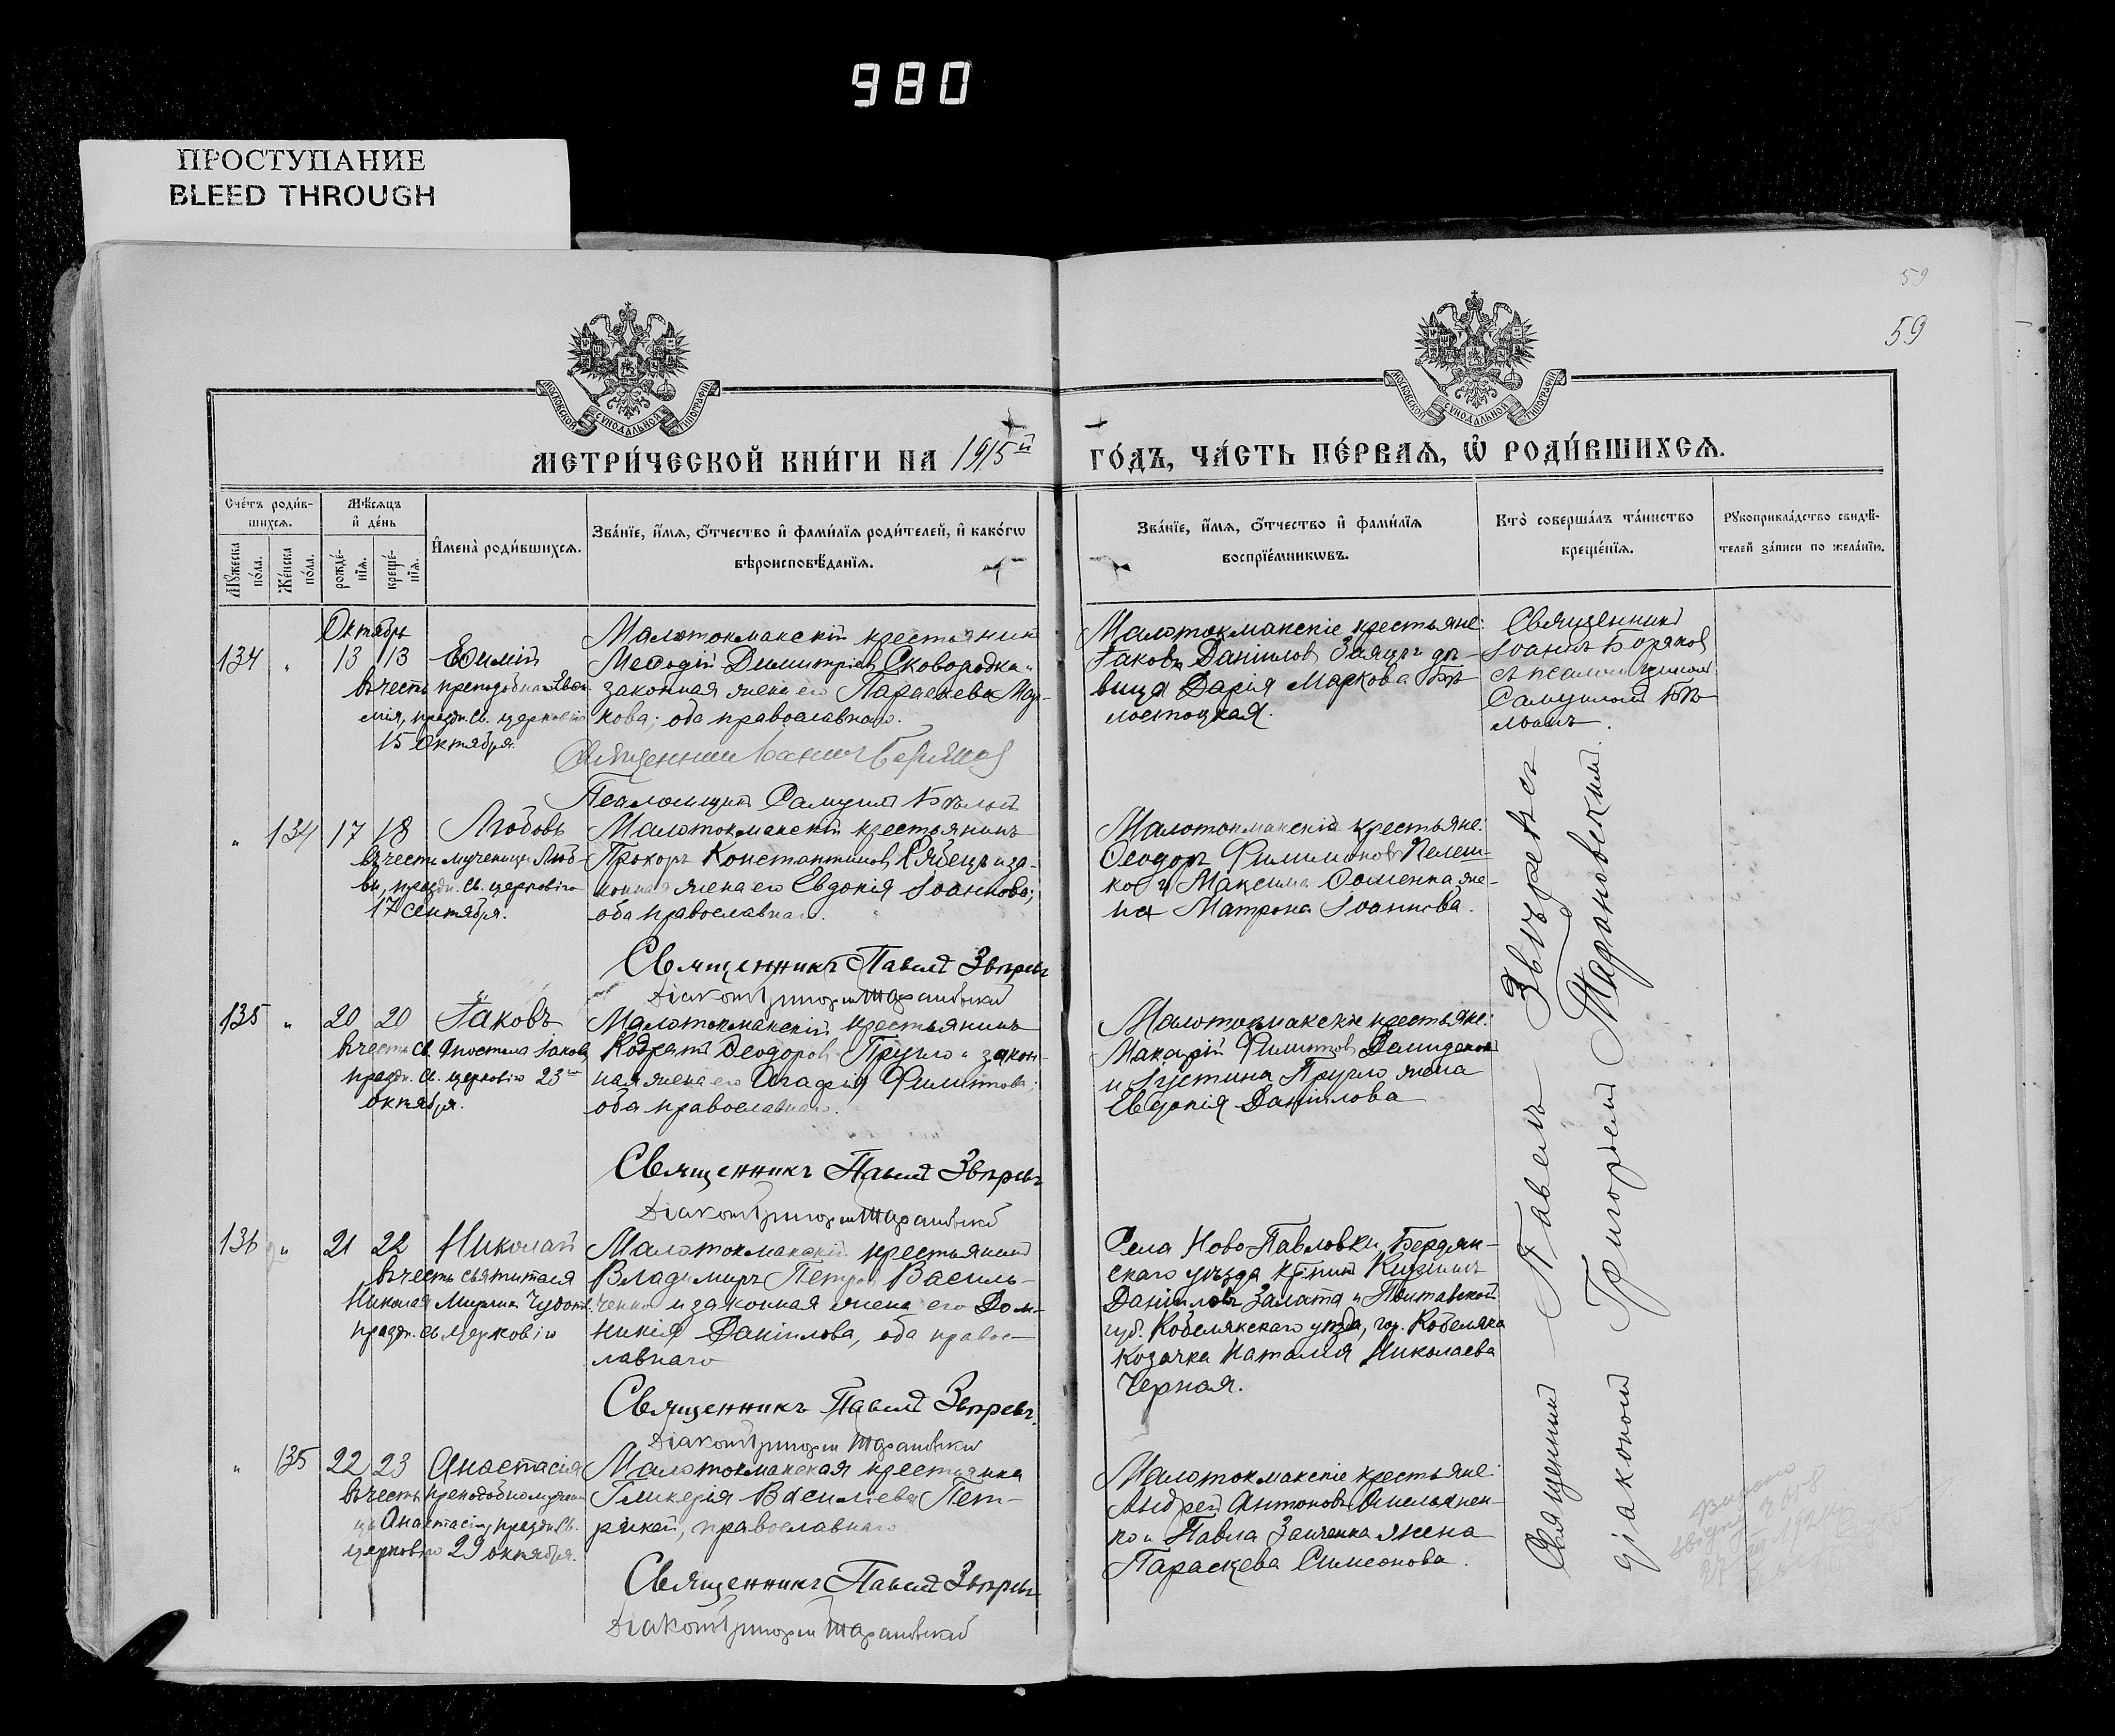 980
ПРОСТУПАНИЕ
BLEED THROUGH
59
59
МОСКОВСКОЙ СУНОДАЛЬНОЙ ТИПОГРАФІИ
МОСКОВСКОЙ СУНОДАЛЬНОЙ ТИПОГРАФІИ
МЕТРИ́ЧЕСКОЙ КНИ́ГИ НА 1915й
ГО́ДЪ, ЧА́СТЬ ПЕ́РВАѦ, Ѿ РОДИ́ВШИХСѦ.
Сче́тъ роди́в-
шихсѧ.
Мѣ́сѧцъ
и҆ де́нь
Мꙋ́жеска
по́ла.
Же́нска
по́ла.
рожде́-
нїѧ.
креще́-
нїѧ.
И҆мена̀ роди́вшихсѧ.
Зва́нїе, и҆́мѧ, ѻ҆́тчество и҆ фами́лїѧ роди́телей, и҆ како́гѡ
вѣроисповѣ́данїѧ.
Зва́нїе, и҆́мѧ, ѻ҆́тчество и҆ фами́лїѧ
воспрїе́мникѡвъ.
Кто̀ соверша́лъ та́инство
креще́нїѧ.
Рꙋкоприкла́дство свидѣ́-
телей за́писи по жела́нїю.
Октябрь
134 " 13 13 Евѳимій
въ честь преподобнаго Евѳи-
мія, праздн. св. церковію
15 октября.
Малотокмакскій крестьянинъ
Меѳодій Димитріевъ Сковородка и
законная жена его Параскева Мар-
кова; оба православнаго.
Священникъ Іоаннъ
Псаломщикъ Самуилъ Бѣлый
Малотокмакскіе крестьяне:
Іаковъ Даніиловъ Заяцъ и дѣ-
вица Дарія Маркова Бѣ-
лостоцкая.
Священникъ
Іоаннъ
съ псаломщикомъ
Самуиломъ Бѣ-
лымъ.
" 134 17 18 Любовь
въ честь мученицы Люб-
ви, праздн. св. церковію
17 сентября.
Малотокмакскій крестьянинъ
Прохоръ Константиновъ Рябецъ и за-
конная жена его Евдокія Іоаннова;
оба православнаго.
Священникъ Павелъ Звѣревъ
Діаконъ Григорій Тарановскій
Малотокмакскіе крестьяне:
Ѳеодоръ Филимоновъ Пелеш-
ко и Максима Соменка же-
на Матрона Іоаннова.
135 " 20 20 Іаковъ
въ честь св. Апостола Іакова,
праздн. св. церковію 23го
октября.
Малотокмакскій крестьянинъ
Кодратъ Ѳеодоровъ Пругло и закон-
ная жена его Агафія Филиппова;
оба православнаго.
Священникъ Павелъ Звѣревъ
Діаконъ Григорій Тарановскій
Малотокмакскіе крестьяне:
Макарій Филипповъ Демиденко
и Іустина Пругло жена
Евдокія Даніилова
136 " 21 22 Николай
въ честь святителя
Николая Мирлик. Чудотв.
праздн. св. церковію
Малотокмакскій крестьянинъ
Владимиръ Петровъ Василь-
ченко и законная жена его Дом-
никія Даніилова, оба правос-
лавнаго
Священникъ Павелъ Звѣревъ.
Діаконъ Григорій Тарановскій
Села Ново-Павловки, Бердян-
скаго уѣзда кр-нинъ
Даніиловъ Залата и Полтавской
губ. Кобелякскаго уѣзда, гор. Кобеляка
козачка Наталія Николаева
Черная.
" 135 22 23 Анастасія
въ честь преподобномучени-
цы Анастасіи, праздн. св.
церковію 29 октября.
Малотокмакская крестьянка
Гликерія Василіева Пет-
православнаго
Священникъ Павелъ Звѣревъ
Діаконъ Григорій Тарановскій
Малотокмакскіе крестьяне:
Андрей Антоновъ Омельянен-
ко и Павла Заиченка жена
Параскева Симеонова.
Священникъ Павелъ Звѣревъ съ
діакономъ Григоріемъ Тарановскимъ.